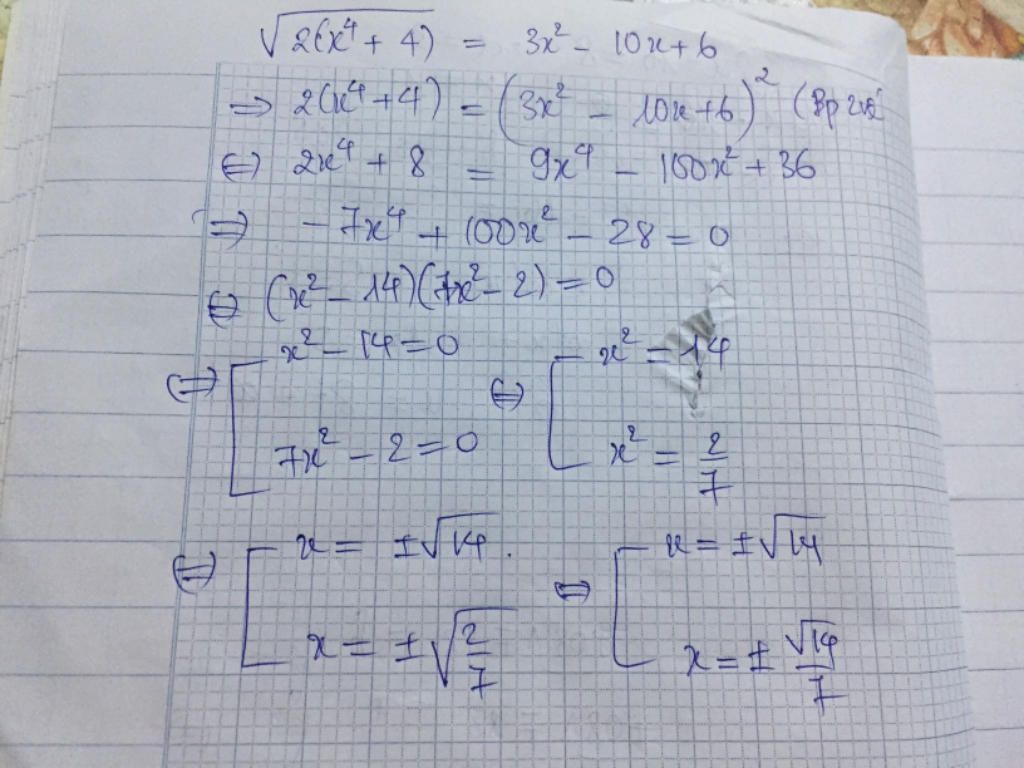 √2(x⁴ + 4) = 3x² - 10x + 6
⇒ 2(x⁴ + 4) = (3x² - 10x + 6)² (
⇔ 2x⁴ + 8 = 9x⁴ - 100x² + 36
⇒ - 7x⁴ + 100x² - 28 = 0
⇔ (x² - 14)(7x² - 2) = 0
⇔ [ x² - 14 = 0 ⇔ [ x² = 14
7x² - 2 = 0 x² = 2/7
⇔ [ x = ±√14. ⇔ [ x = ±√14
x = ±√(2/7) x = ± √14/7